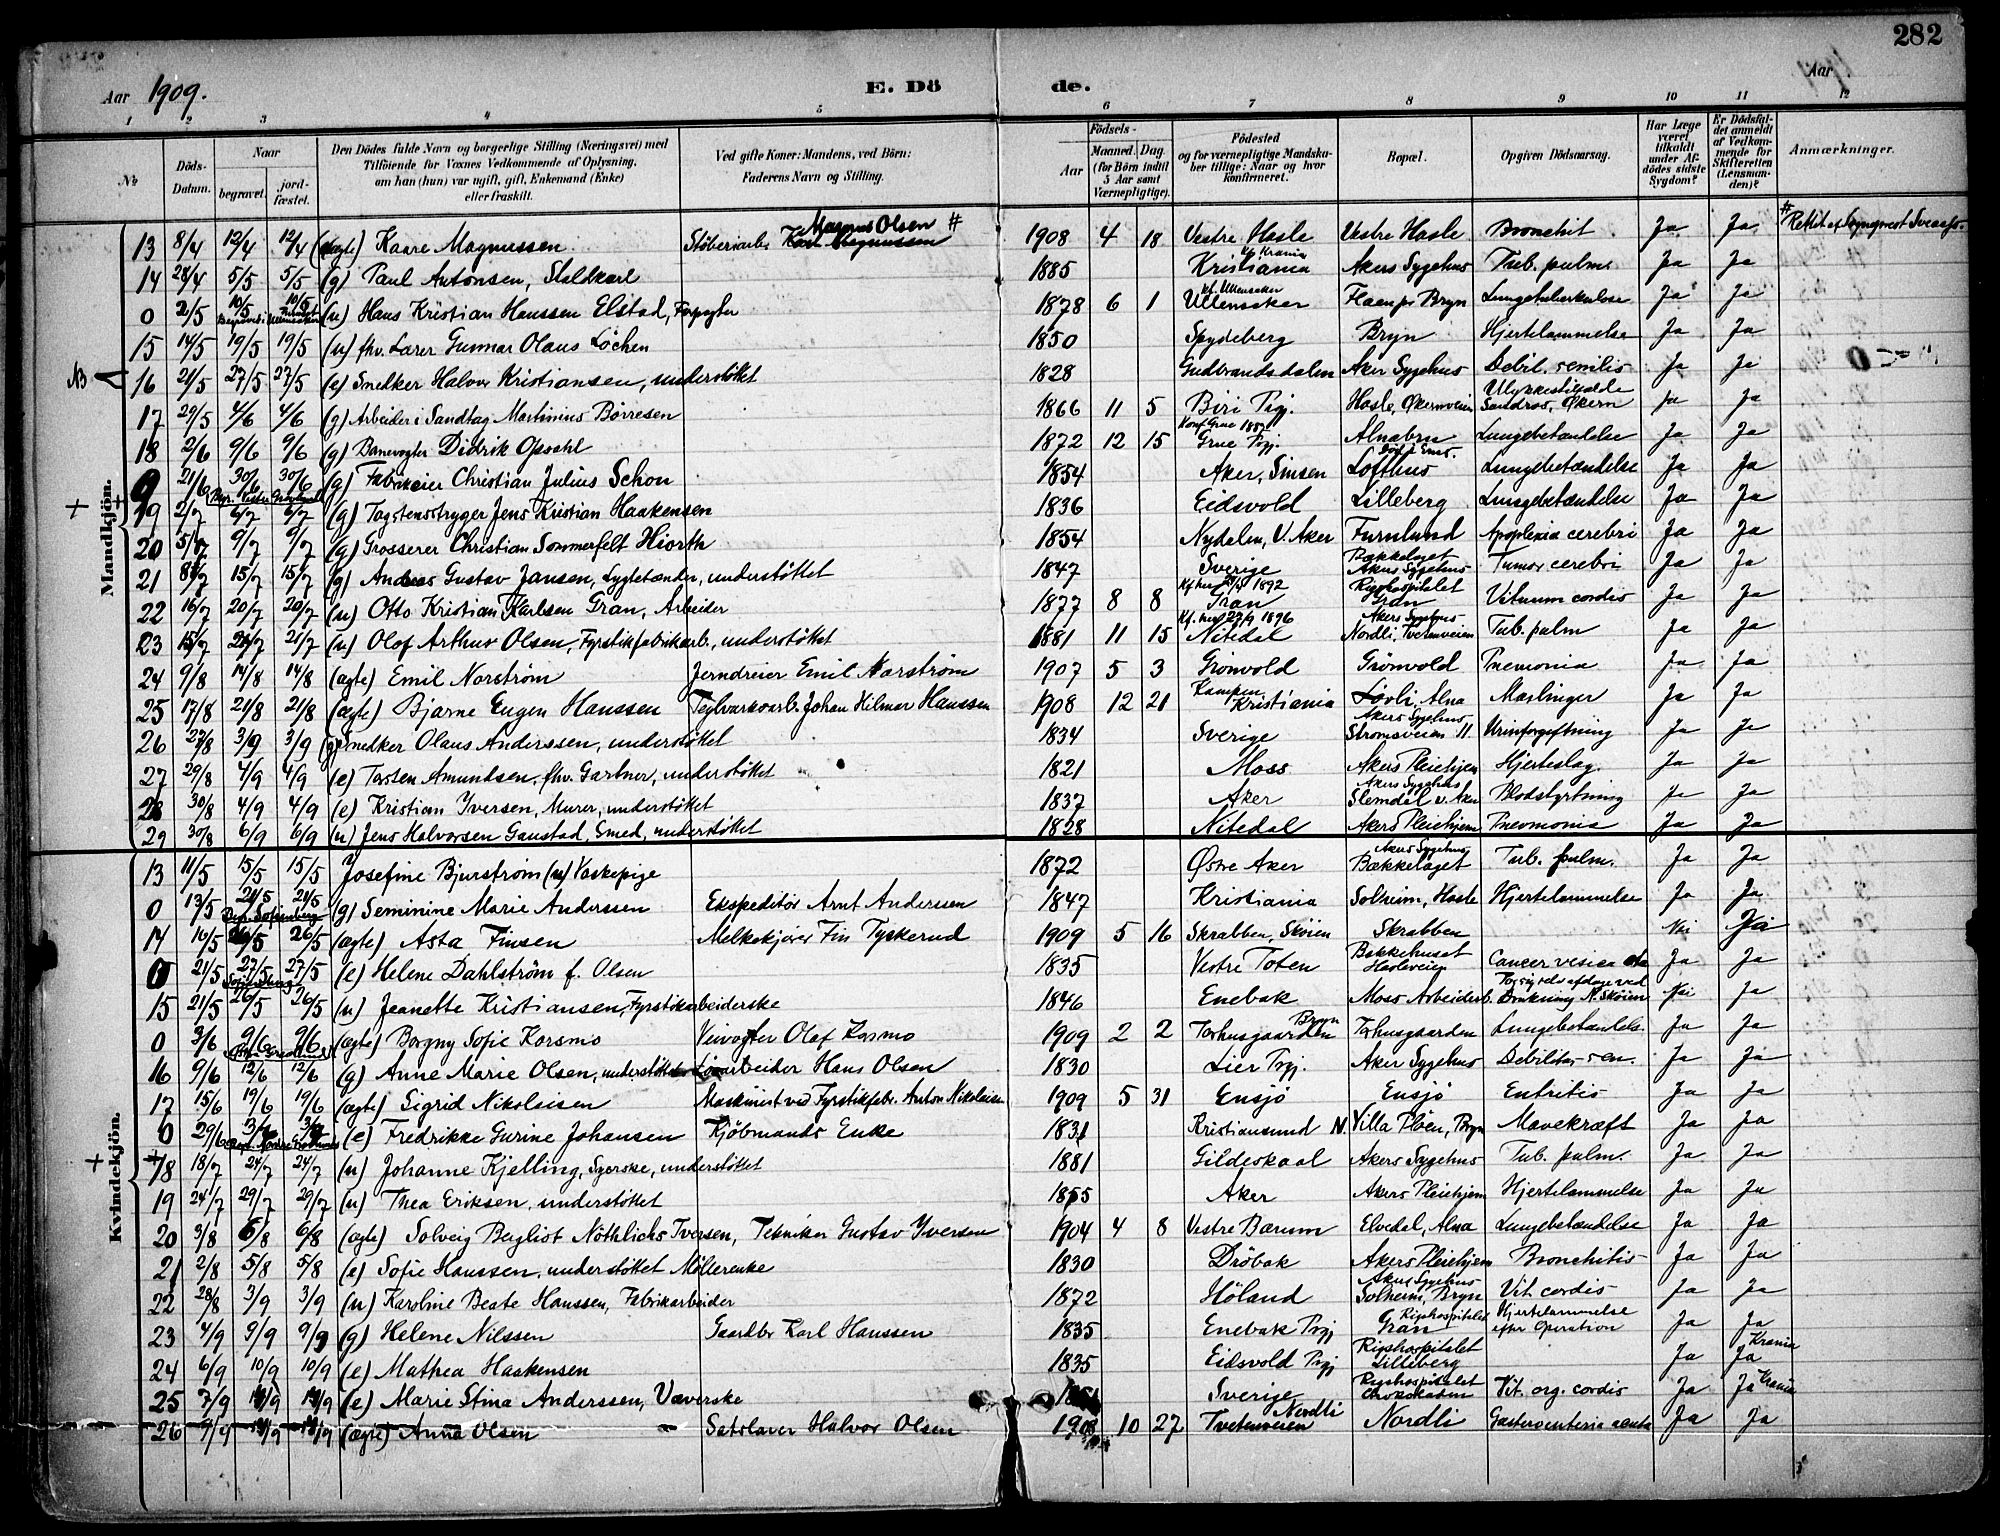 282
Aar 1909. E. Dö de. Aar
1 2 3 4 5 6 7 8 9 10 11 12
№ Döds-Datum. Naar begravet. jord-fæstet. Den Dödes fulde Navn og borgerlige Stilling (Næringsvei) med Tilföiende for Voxnes Vedkommende af Oplysning, om han (hun) var ugift, gift, Enkemand (Enke) eller fraskilt. Ved gifte Koner: Mandens, ved Börn: Faderens Navn og Stilling. Födsels- Aar Maaned. Dag. (for Börn indtil 5 Aar samt Værnepligtige). Födested og for værnepligtige Mandskaber tillige: Naar og hvor konfirmeret. Bopæl. Opgiven Dödsaarsag. Har Læge været tilkaldt under Afdödes sidste Sygdom? Er Dödsfaldet anmeldt af Vedkommende for Skifteretten (Lensmanden)? Anmærkninger.
Mandkjön.
13 8/4 12/4 12/4 (ægte) Kaare Magnussen Støberiarb. Karl Magnussen Magnus Olsen # 1908 4 18 Vestre Hasle Vestre Hasle Bronchit Ja Ja # Rettet
14 28/4 5/5 5/5 (g) Paul Antonsen, Staldkarl 1885 Kristiania Akers Sygehus Tub. pulm. Ja Ja
0 2/5 10/5 10/5 (u) Hans Kristian Hanssen Elstad, Forpagter 1878 6 1 Kf. Ullensaker Ullensaker Flaen pr Bryn Lungetuberkulose Ja Ja
15 14/5 19/5 19/5 (u) fhv. Lærer Gunnar Olaus Løchen 1850 Spydeberg Bryn Hjertelammelse Ja Ja
NB 16 21/5 27/5 27/5 (e) Snedker Halvor Kristiansen, understøttet 1828 Gudbrandsdalen Aker Sygehus Debil. senilis Ja Ja
17 29/5 4/6 4/6 (g) Arbeider i Sandtag Martinius Børresen 1866 11 5 Biri Prgj. Hasle, Økernveien Ulykkestilfælde Sandras, Økern Ja Ja
18 2/6 9/6 9/6 (g) Banevogter Didrik Opsahl 1872 12 15 Konf. Grue 1887 Grue Prgj. Alnabru Lungebetændelse Ja Ja
0 21/6 30/6 30/6 (g) Fabrikeier Christian Julius Schou 1854 Aker, Sinsen Lofthus Lungebetændelse Ja Ja
19 2/7 6/7 6/7 (g) Tagstensstryger Jens Kristian Haakensen 1836 Eidsvold Lilleberg Lungebetændelse Ja Ja
20 5/7 9/7 9/7 (g) Grosserer Christian Sommerfelt Hiorth 1854 Nydalen, V. Aker Furulund Apoplexia cerebri Ja Ja
21 8/7 15/7 15/7 (g) Andreas Gustav Jansen, Lygtetænder, understøttet 1847 Sverige Bækkelaget Akers Sygehus Tumor cerebri Ja Ja
22 16/7 20/7 20/7 (u) Otto Kristian Karlsen Gran, Arbeider 1877 8 8 1892 Gran Rigshospitalet Gran Vitium cordis Ja Ja
23 15/7 21/7 21/7 (u) Olaf Arthur Olsen, Fyrstikfabrikarb., understøttet 1881 11 15 Kf. her 27/9 1896 Nitedal Akers Sygehus Nordli, Tvetenveien Tub. pulm Ja Ja
24 9/8 14/8 14/8 (ægte) Emil Norstrøm Jerndreier Emil Narstrøm 1907 5 3 Grönvold Grönvold Pneumonia Ja Ja
25 17/8 21/8 21/8 (ægte) Bjarne Eugen Hanssen Teglværksarb. Johan Hilmar Hanssen 1908 12 21 Kampen Kristiania Løvli, Alna Mæslinger Ja Ja
26 27/8 3/9 3/9 (g) Snedker Olaus Anderssen, understøttet 1834 Sverige Akers Sygehus Strømsveien 11 Urinforgiftning Ja Ja
27 29/8 4/9 4/9 (e) Torsten Amundsen, fhv. Gartner, understøttet 1821 Moss Akers Pleiehjem Hjerteslag Ja Ja
28 30/8 4/9 4/9 (e) Kristian Yversen, Murer, understøttet 1837 Aker Akers Sygehus Slemdal v. Aker Blodstyrtning Ja Ja
29 30/8 6/9 6/9 (u) Jens Halvorsen Gaustad, Smed, understøttet 1828 Nitedal Akers Pleiehjem Pneumonia Ja Ja
Kvindekjön.
13 11/5 15/5 15/5 Josefine Bjurstrøm (u) Vaskepige 1872 Østre Aker Akers Sygehus Bækkelaget Tub. pulm. Ja Ja
0 13/5 21/5 21/5 (g) Seminine Marie Anderssen Ekspeditør Arnt Anderssen 1847 Kristiania Solheim, Hasle Hjertelammelse Ja Ja
14 16/5 26/5 26/5 (ægte) Asta Finsen Melkekjører Fin Tyskerud 1909 5 16 Skrabben, Skøien Skrabben Nei Ja
0 21/5 27/5 27/5 (e) Helene Dahlström f. Olsen 1835 Vestre Toten Bakkehuset Hasleveien Cancer vesica Ja Ja
15 21/5 26/5 26/5 (u) Jeanette Kristiansen, Fyrstikarbeiderske 1846 Enebak Moss Arbeiderb. Drukning N. Skøien Nei Ja
0 3/6 9/6 9/6 (ægte) Borgny Sofie Korsmo Veivogter Olaf Kosmo 1909 2 2 Torhusgaarden Bryn Torhusgaarden Lungebetændels. Ja Ja
16 9/6 12/6 12/6 (g) Anne Marie Olsen, understøttet Løsarbeider Hans Olsen 1830 Lier Prgj. Aker Sygehus Debilitas sen. Ja Ja
17 15/6 19/6 19/6 (ægte) Sigrid Nikolaisen Maskinist ved Fyrstikfabr. Anton Nikolaisen 1909 5 31 Ensjö Ensjö Entritis Ja Ja
0 29/6 3/7 3/7 (e) Fredrikke Gurine Johansen Kjöbmands Enke 1831 Kristiansund N. Villa Pløen, Bryn Mavekræft Ja Ja
18 18/7 24/7 24/7 (u) Johanne Kjelling, Syerske, understøttet 1881 Gildeskaal Akers Sygehus Tub. pulm. Ja Ja
19 24/7 29/7 29/7 (u) Thea Eriksen, understøttet 1855 Aker Akers Pleiehjem Hjertelammelse Ja Ja
20 3/8 6/8 6/8 (ægte) Solveig Bergliot Nöthlichs Iversen, Tekniker Gustav Yversen 1904 4 8 Vestre Bærum Elvedal, Alna Lungebetændelse Ja Ja
21 2/8 5/8 5/8 (e) Sofie Hanssen, understøttet Møllerenke 1830 Dröbak Akers Pleiehjem Bronchitis Ja Ja
22 28/8 3/9 3/9 (u) Karoline Beate Hanssen, Fabrikarbeider 1872 Höland Akers Sygehus Solheim, Bryn Vit. cordis Ja Ja
23 4/9 9/9 9/9 (g) Helene Nilssen Gaardbr Karl Hanssen 1835 Enebak Prgj Rigshospitalet Gran Hjertelammelse efter Operation Ja Ja
24 6/9 10/9 10/9 (e) Mathea Haakensen 1835 Eidsvold Prgj Rigshospitalet Lilleberg Ja Ja Krania
25 7/9 (e) Marie Stina Anderssen, Væverske Sverige Rigshospitalet Vit. org. cordis Ja Ja Krania
26 9/9 (ægte) Anna Olsen Sætslaver Halvor Olsen 1908 10 27 Nordli Tvetenveien Nordli Ja Ja